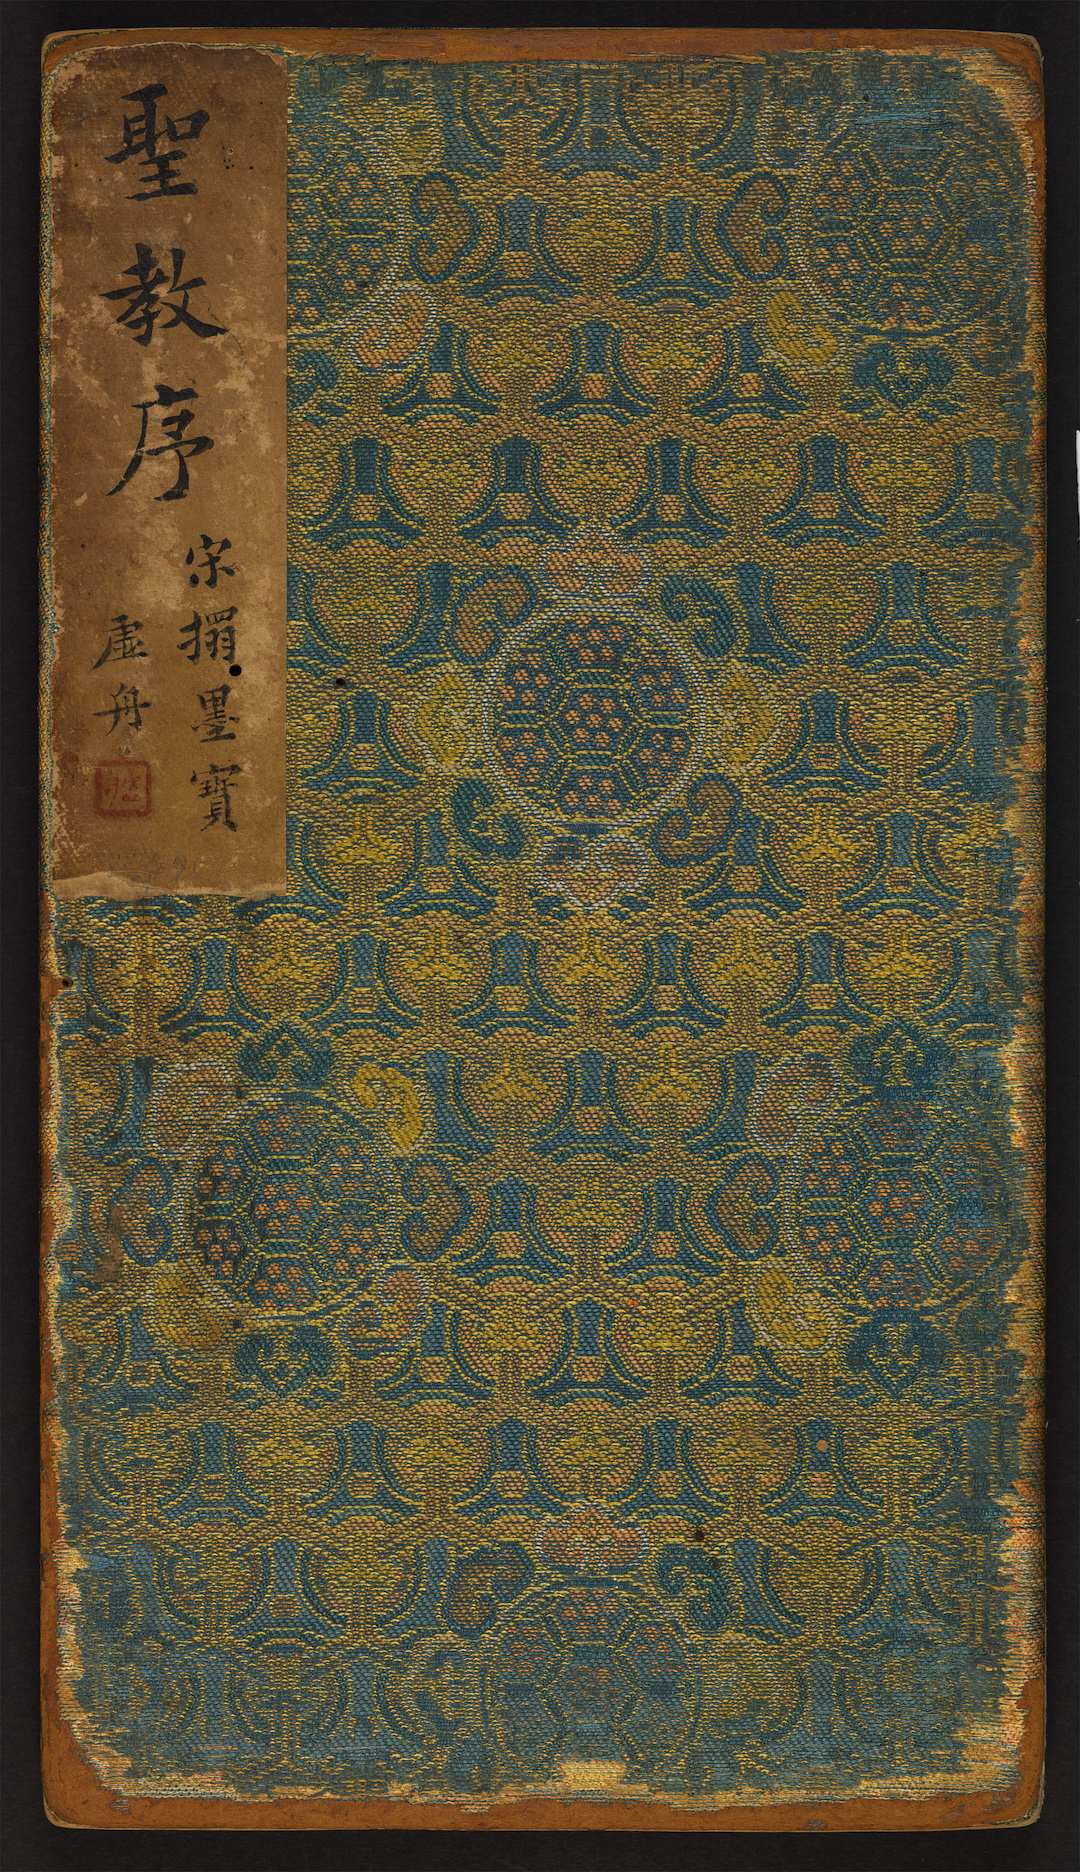 聖教序
宋搨墨寶
虛舟